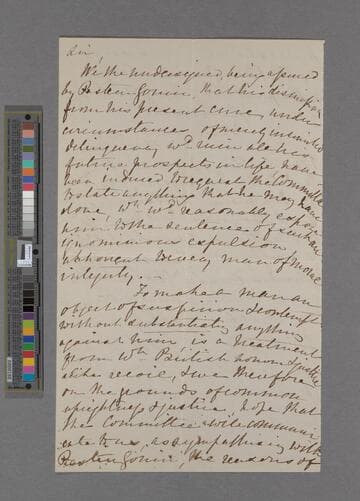 Sir,
We the undersigned, being assured
by Rostein Gonin, that his dismissal
from his present cure, under
circumstances of merely insinuated
delinquency wd. ruin all his
future prospects in life, have
been induced to request the Committee
to state anything that he may have
done, wh. wd. reasonably expose
him to the sentence of such an
ignominious expulsion,
abhorrent to every man of moral
integrity. —
To make a man an
object of suspicion & contempt
without substantiating anything
against him, is a treatment
from wh. British honor & justice
alike recoil, & we therefore
on the grounds of common
uprightness & justice, hope that
the Committee will communi-
cate to us, as sympathising with
the reasons of